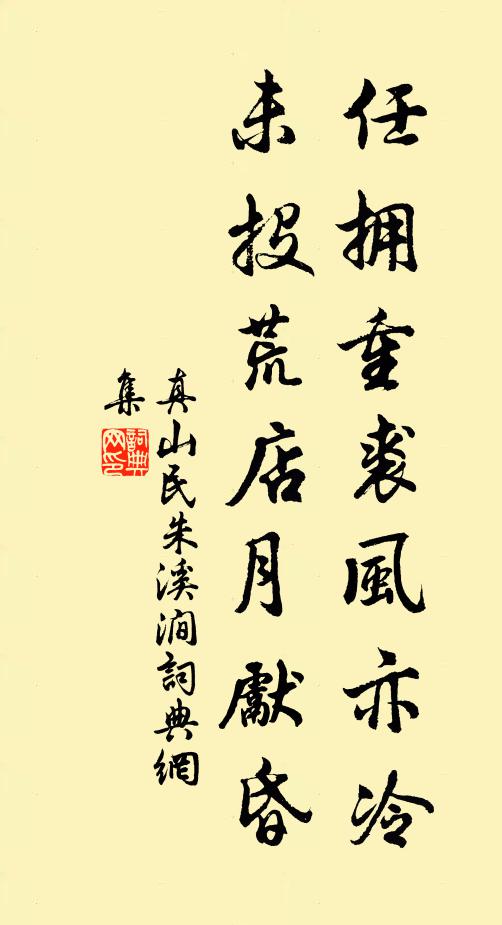 任拥重裘風亦冷
未投荒店月獻昏
真山民朱溪澗詞典網
集
詞典
网印